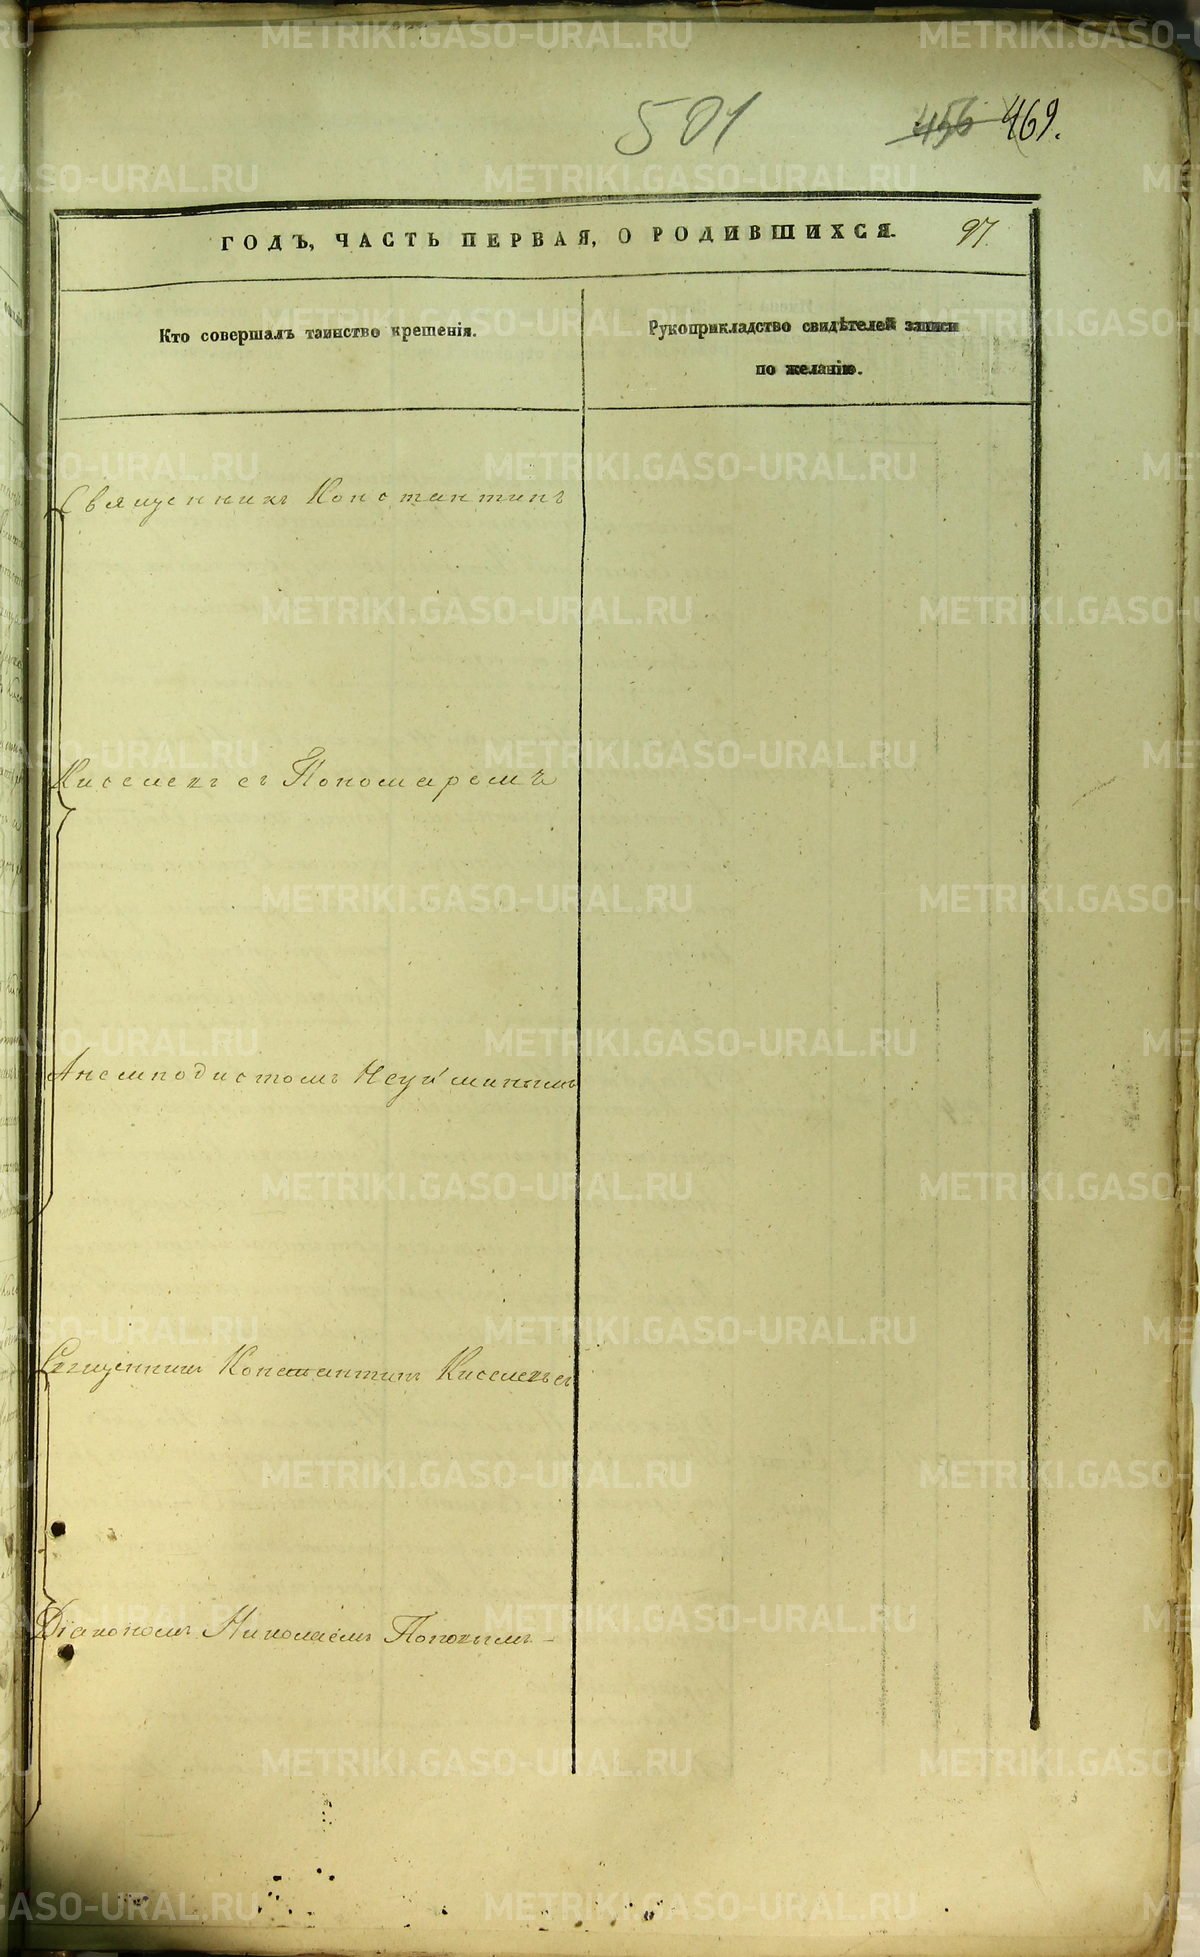 METRIKI.GASO-URAL.RU
501 456 469.
ГОДЪ, ЧАСТЬ ПЕРВАЯ, О РОДИВШИХСЯ. 97.
Кто совершалъ таинство крещенія.
Рукоприкладство свидѣтелей записи
по желанію.
Священникъ Константинъ
Киселевъ съ Пономаремъ
Анемподистомъ Неуйминымъ
Священникъ Константинъ Киселевъ съ
Діакономъ Николаемъ Поповымъ